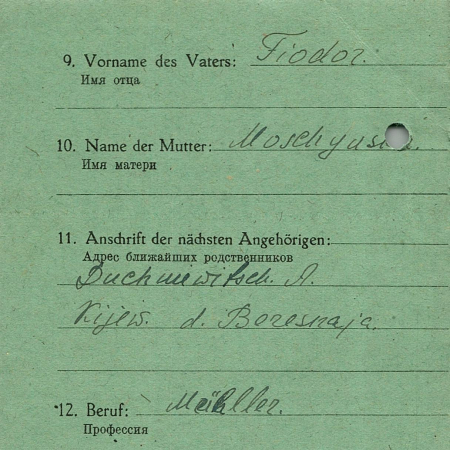 9. Vorname des Vaters: Fiodor.
Имя отца
10. Name der Mutter:
Имя матери
11. Anschrift der nächsten Angehörigen:
Адрес ближайших родственников
Duchniewitsch. A.
Kijew. d. Beresnaja.
12. Beruf: Mühller.
Профессия